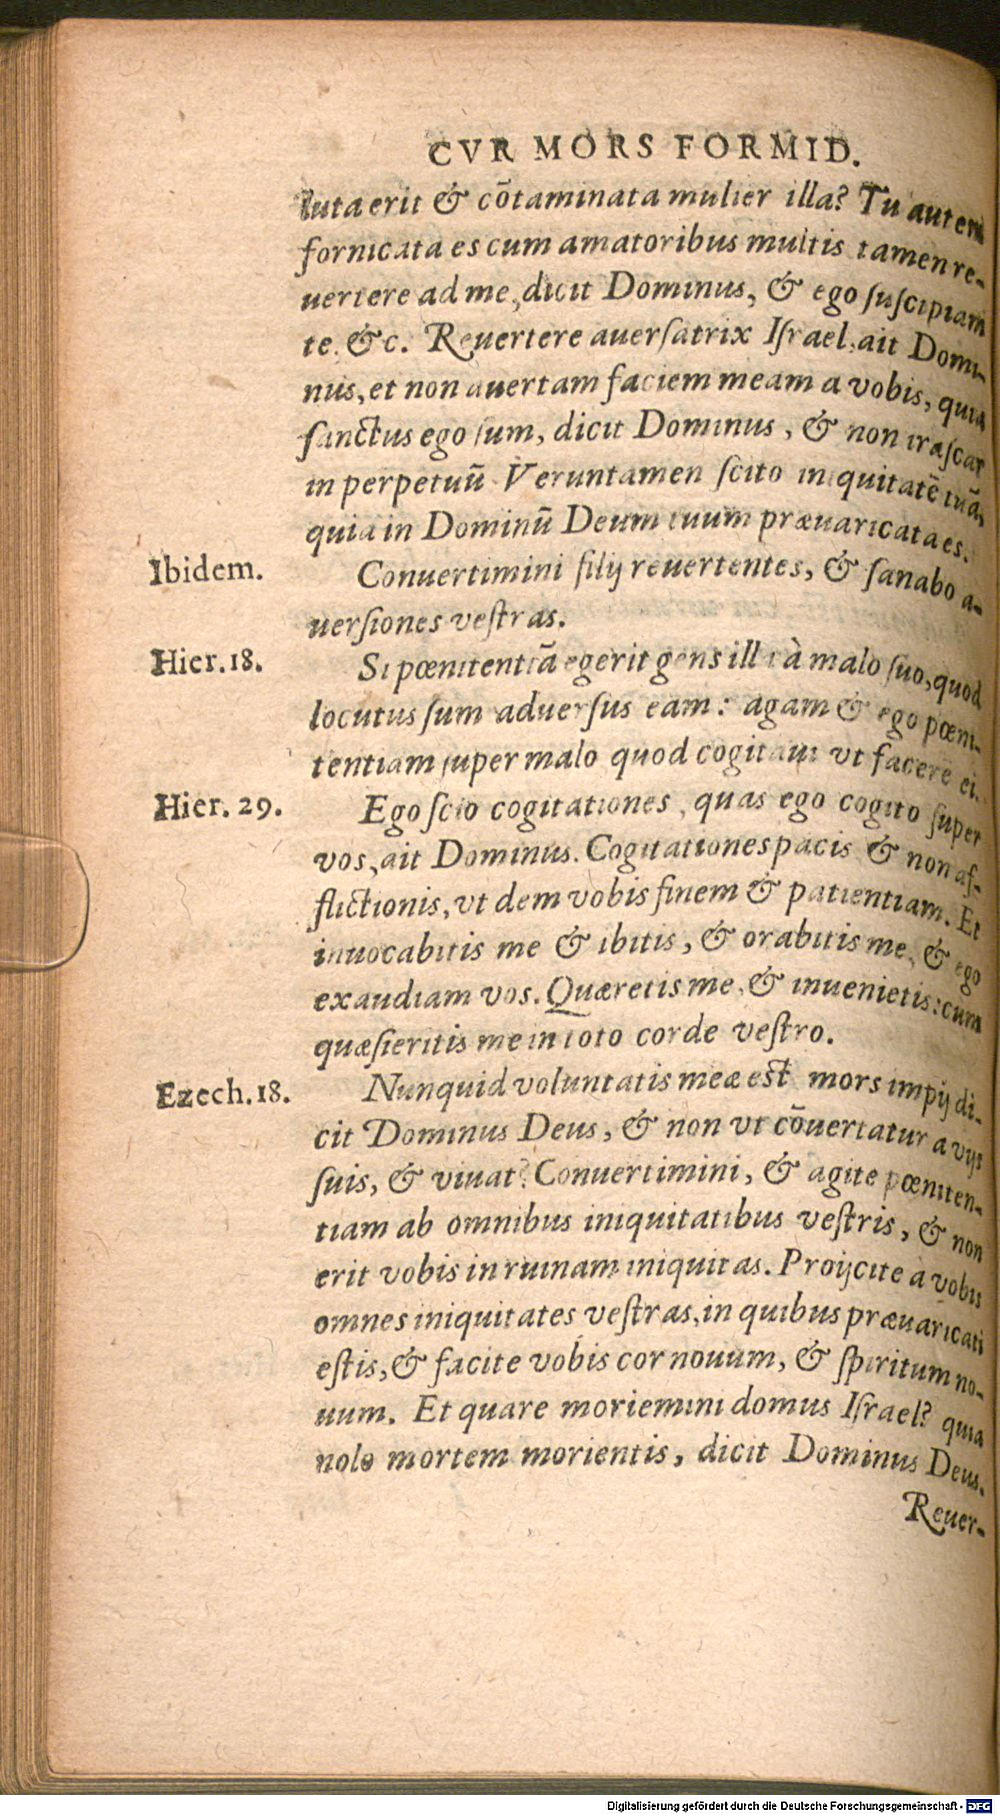 CVR MORS FORMID.
luta erit & cõtaminata mulier illa? Tu autem
fornicata es cum amatoribus multis tamen re-
uertere ad me, dicit Dominus, & ego ſuſcipiam
te. &c. Reuertere auerſatrix Iſrael, ait Domi-
nus, et non auertam faciem meam a vobis, quia
ſanctus ego ſum, dicit Dominus, & non iraſcar
in perpetuũ. Veruntamen ſcito iniquitatẽ tuã,
quia in Dominũ Deum tuum præuaricata es.
Ibidem.
Conuertimini filij reuertentes, & ſanabo a-
uerſiones veſtras.
Hier. 18.
Si pœnitentiã egerit gens illa à malo ſuo, quod
locutus ſum aduerſus eam: agam & ego pœni-
tentiam ſuper malo quod cogitaui vt facere ei.
Hier. 29.
Ego ſcio cogitationes, quas ego cogito ſuper
vos, ait Dominus. Cogitationes pacis & non af-
flictionis, vt dem vobis finem & patientiam. Et
inuocabitis me & ibitis, & orabitis me, & ego
exaudiam vos. Quæretis me, & inuenietis: cum
quæſieritis me in toto corde veſtro.
Ezech. 18.
Nunquid voluntatis meæ eſt mors impij di-
cit Dominus Deus, & non vt cõuertatur a vijs
ſuis, & viuat? Conuertimini, & agite pœniten-
tiam ab omnibus iniquitatibus veſtris, & non
erit vobis in ruinam iniquitas. Proijcite à vobis
omnes iniquitates veſtras, in quibus præuaricati
eſtis, & facite vobis cor nouum, & ſpiritum no-
uum. Et quare moriemini domus Iſrael? quia
nolo mortem morientis, dicit Dominus Deus.
Reuer-
Digitalisierung gefördert durch die Deutsche Forschungsgemeinschaft - DFG